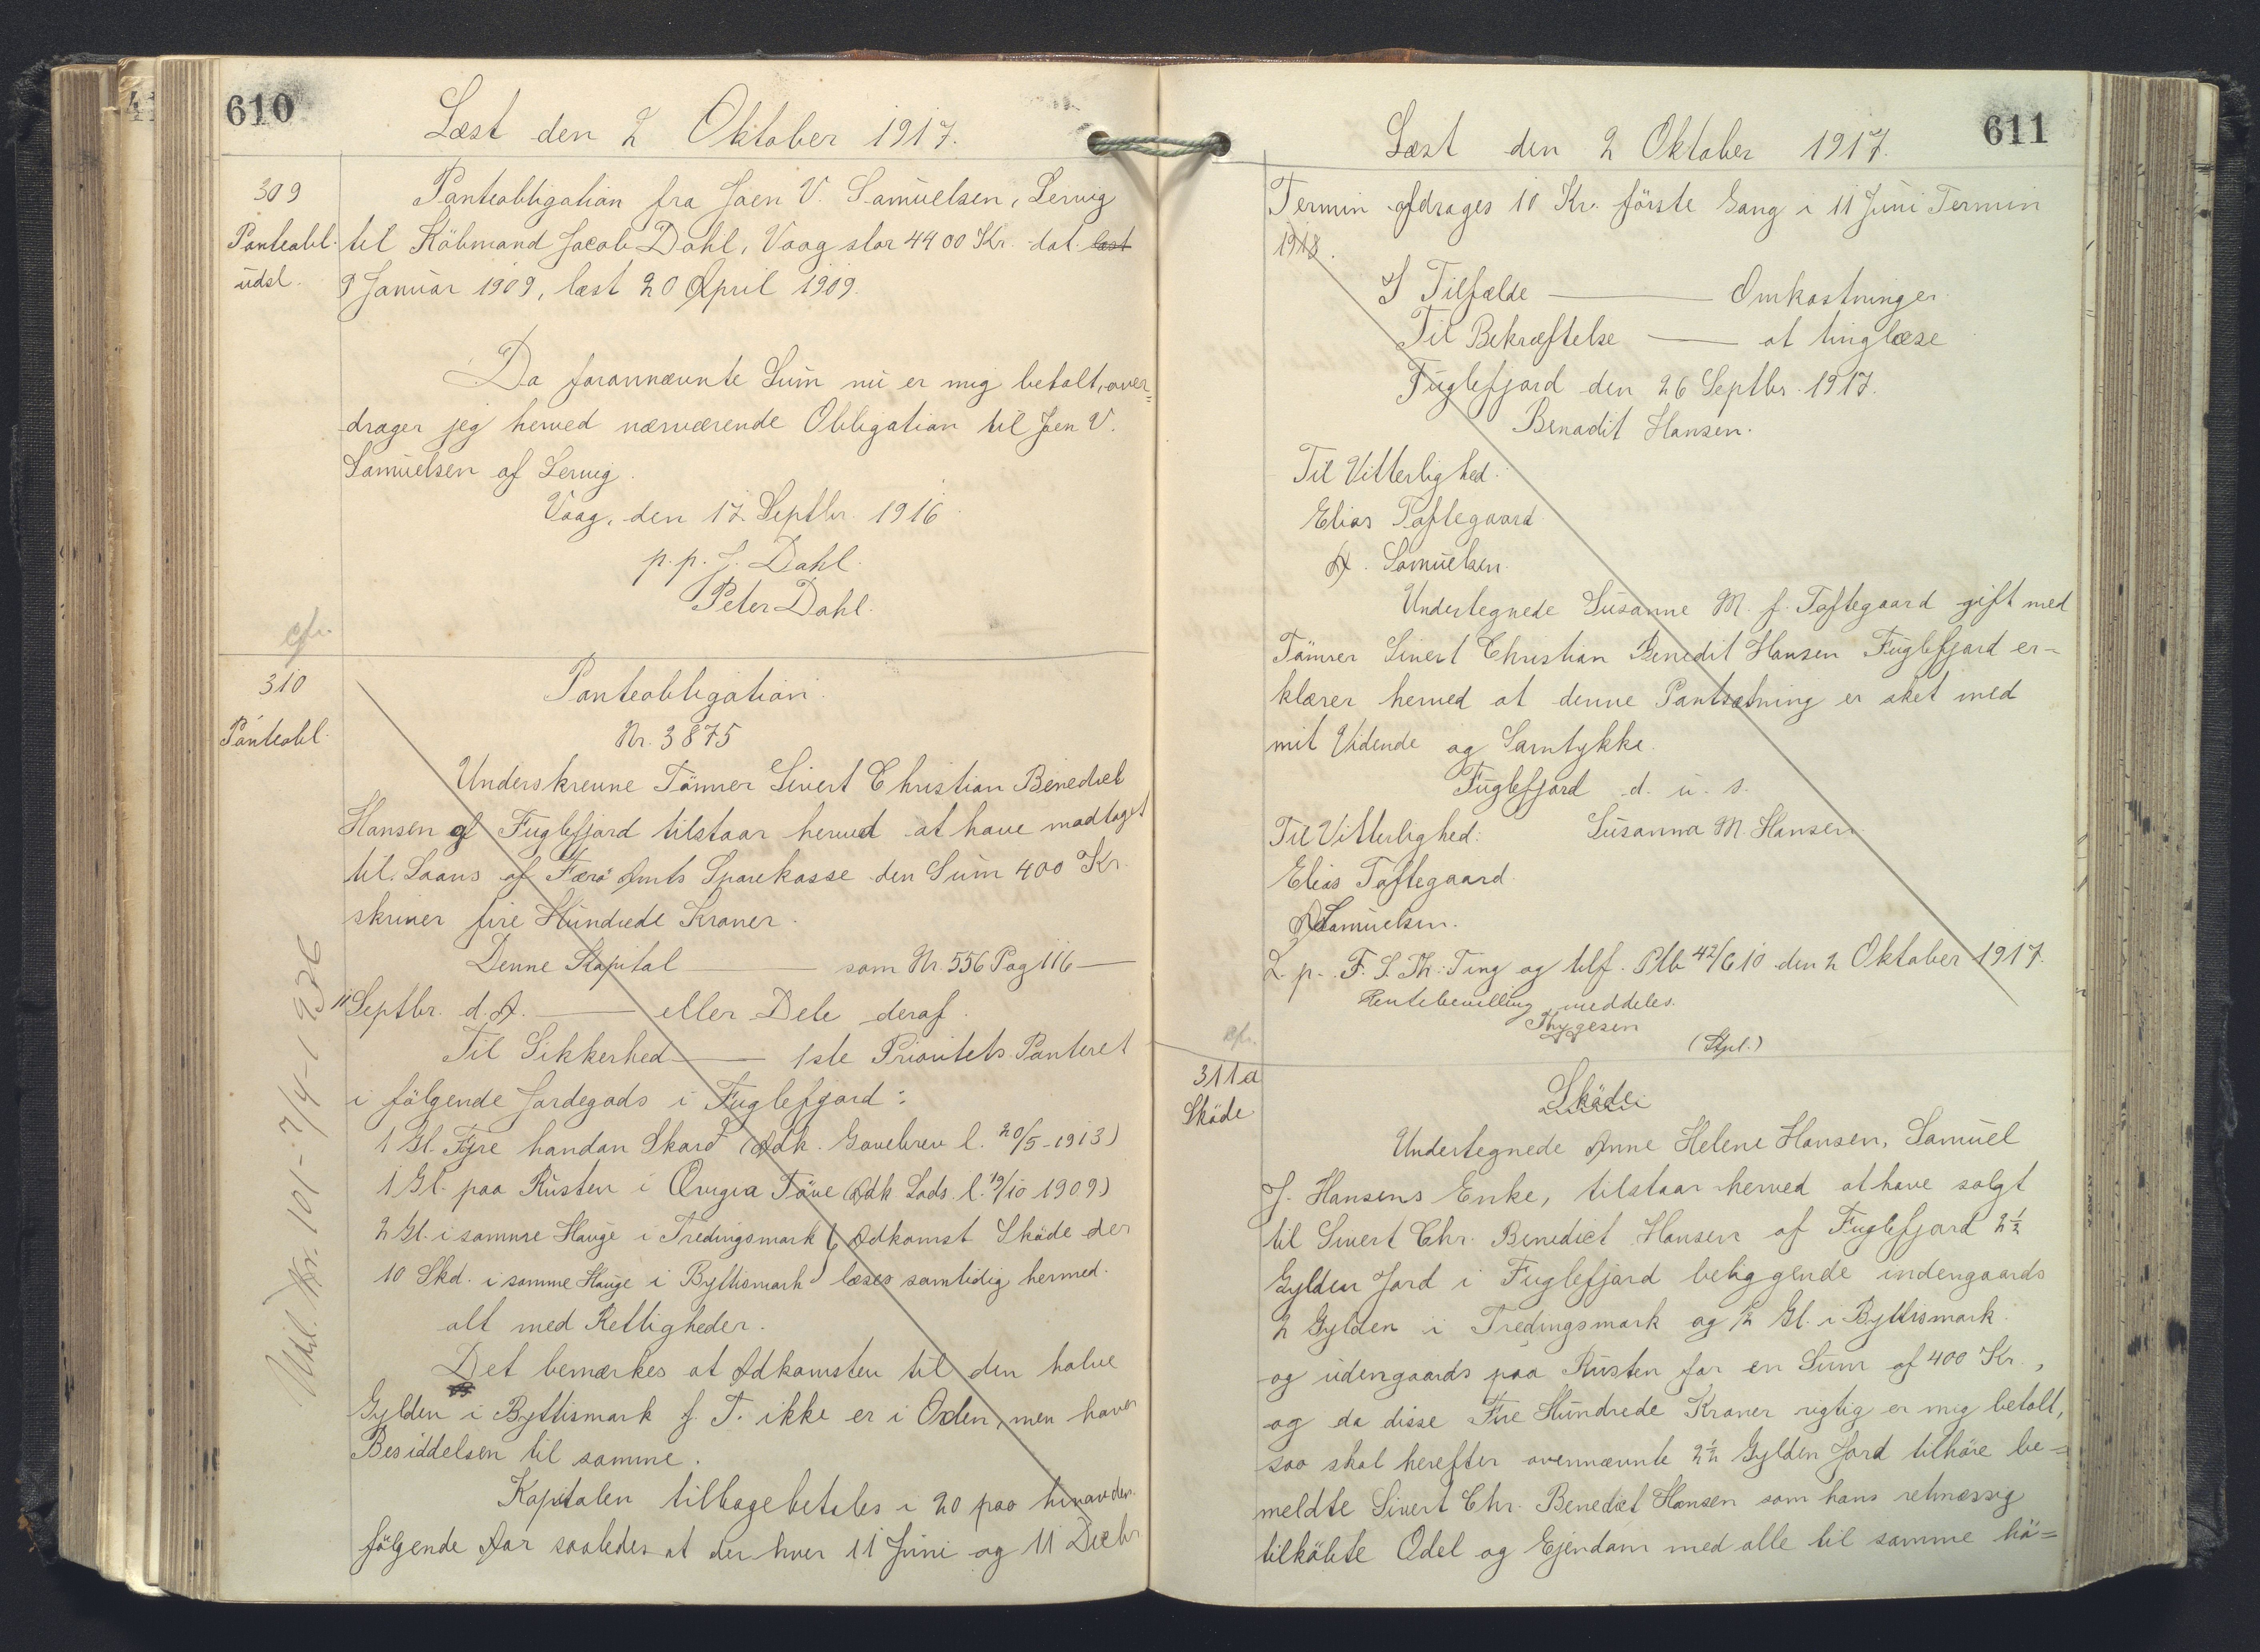 610
Læst den 2 Oktober 1917.
309
Panteobl.
udsl.
Panteobligation fra Joen V. Samuelsen, Lervig
til Köbmand Jacob Dahl, Vaag stor 4400 Kr. dat. læst
9 Januar 1909, læst 20 April 1909.
Da forannævnte Sum nu er mig betalt, over=
drager jeg herved nærværende Obligation til Joen V.
Samuelsen af Lervig.
Vaag, den 17 Septbr. 1916
p.p. J. Dahl.
Peter Dahl.
cfr.
310
Panteobl.
Panteobligation.
Nr. 3875
Underskrevne Tömrer Sivert Christian Benedict
Hansen af Fuglefjord tilstaar herved at have modtaget
til Laans af Færö Amts Sparekasse den Sum 400 Kr.
skriver fire Hundrede Kroner.
Denne Kapital — som Nr. 556 Pag 116 —
11 Septbr. d. A. — eller Dele deraf.
Til Sikkerhed — 1ste Prioritets Panteret
i fölgende Jordegods i Fuglefjord:
1 Gl. Fyre handan Skard (Adk. Gavebrev l. 20/5-1913)
1 Gl. paa Rusten i Töve (Adk. Lods. l. 19/10 1909)
2 Gl. i samme Hauge i Tredingsmark } Adkomst Sköde der
10 Skd. i samme Hauge i Byttismark } læses samtidig hermed.
alt med Rettigheder.
Det bemærkes at Adkomsten til den halve
Gylden i Byttismark f. T. ikke er i Orden, men haver
Besiddelsen til samme.
Kapitalen tilbagebetales i 20 paa hinanden
fölgende Aar saaledes at der hver 11 Juni og 11 Decbr
Udsl. Nr. 101 - 7/4-1936
611
Læst den 2 Oktober 1917.
Termin afdrages 10 Kr. förste Gang i 11 Juni Termin
1918.
I Tilfælde — Omkostninger.
Til Bekræftelse — at tinglæse
Fuglefjord den 26 Septbr. 1917.
Benadit Hansen.
Til Vitterlighed:
Elias Toftegaard
A. Samuelsen.
Undertegnede Susanne M. f. Toftegaard gift med
Tömrer Sivert Christian Benedit Hansen Fuglefjord er=
klærer herved at denne Pantsætning er sket med
mit Vidende og Samtykke.
Fuglefjord d. u. s.
Til Vitterlighed: Susanna M. Hansen.
Elias Toftegaard
A Samuelsen.
L. p. F. S. Th: Ting og tilf. Ptb 42/610 den 2 Oktober 1917.
Rentebevilling meddeles.
Thygesen
(Stpl.)
cfr.
311a
Sköde
Sköde
Undertegnede Anne Helene Hansen, Samuel
J. Hansens Enke, tilstaar herved at have solgt
til Sivert Chr. Benedict Hansen af Fuglefjord 2½
Gylden Jord i Fuglefjord beliggende indengaards
2 Gylden i Tredingsmark og ½ Gl. i Byttismark.
og udengaards paa Rusten for en Sum af 400 Kr.,
og da disse Fire Hundrede Kroner rigtig er mig betalt,
saa skal herefter ovennævnte 2½ Gylden Jord tilhöre be=
meldte Sivert Chr. Benedict Hansen som hans retmæssig
tilköbte Odel og Ejendom med alle til samme hö=